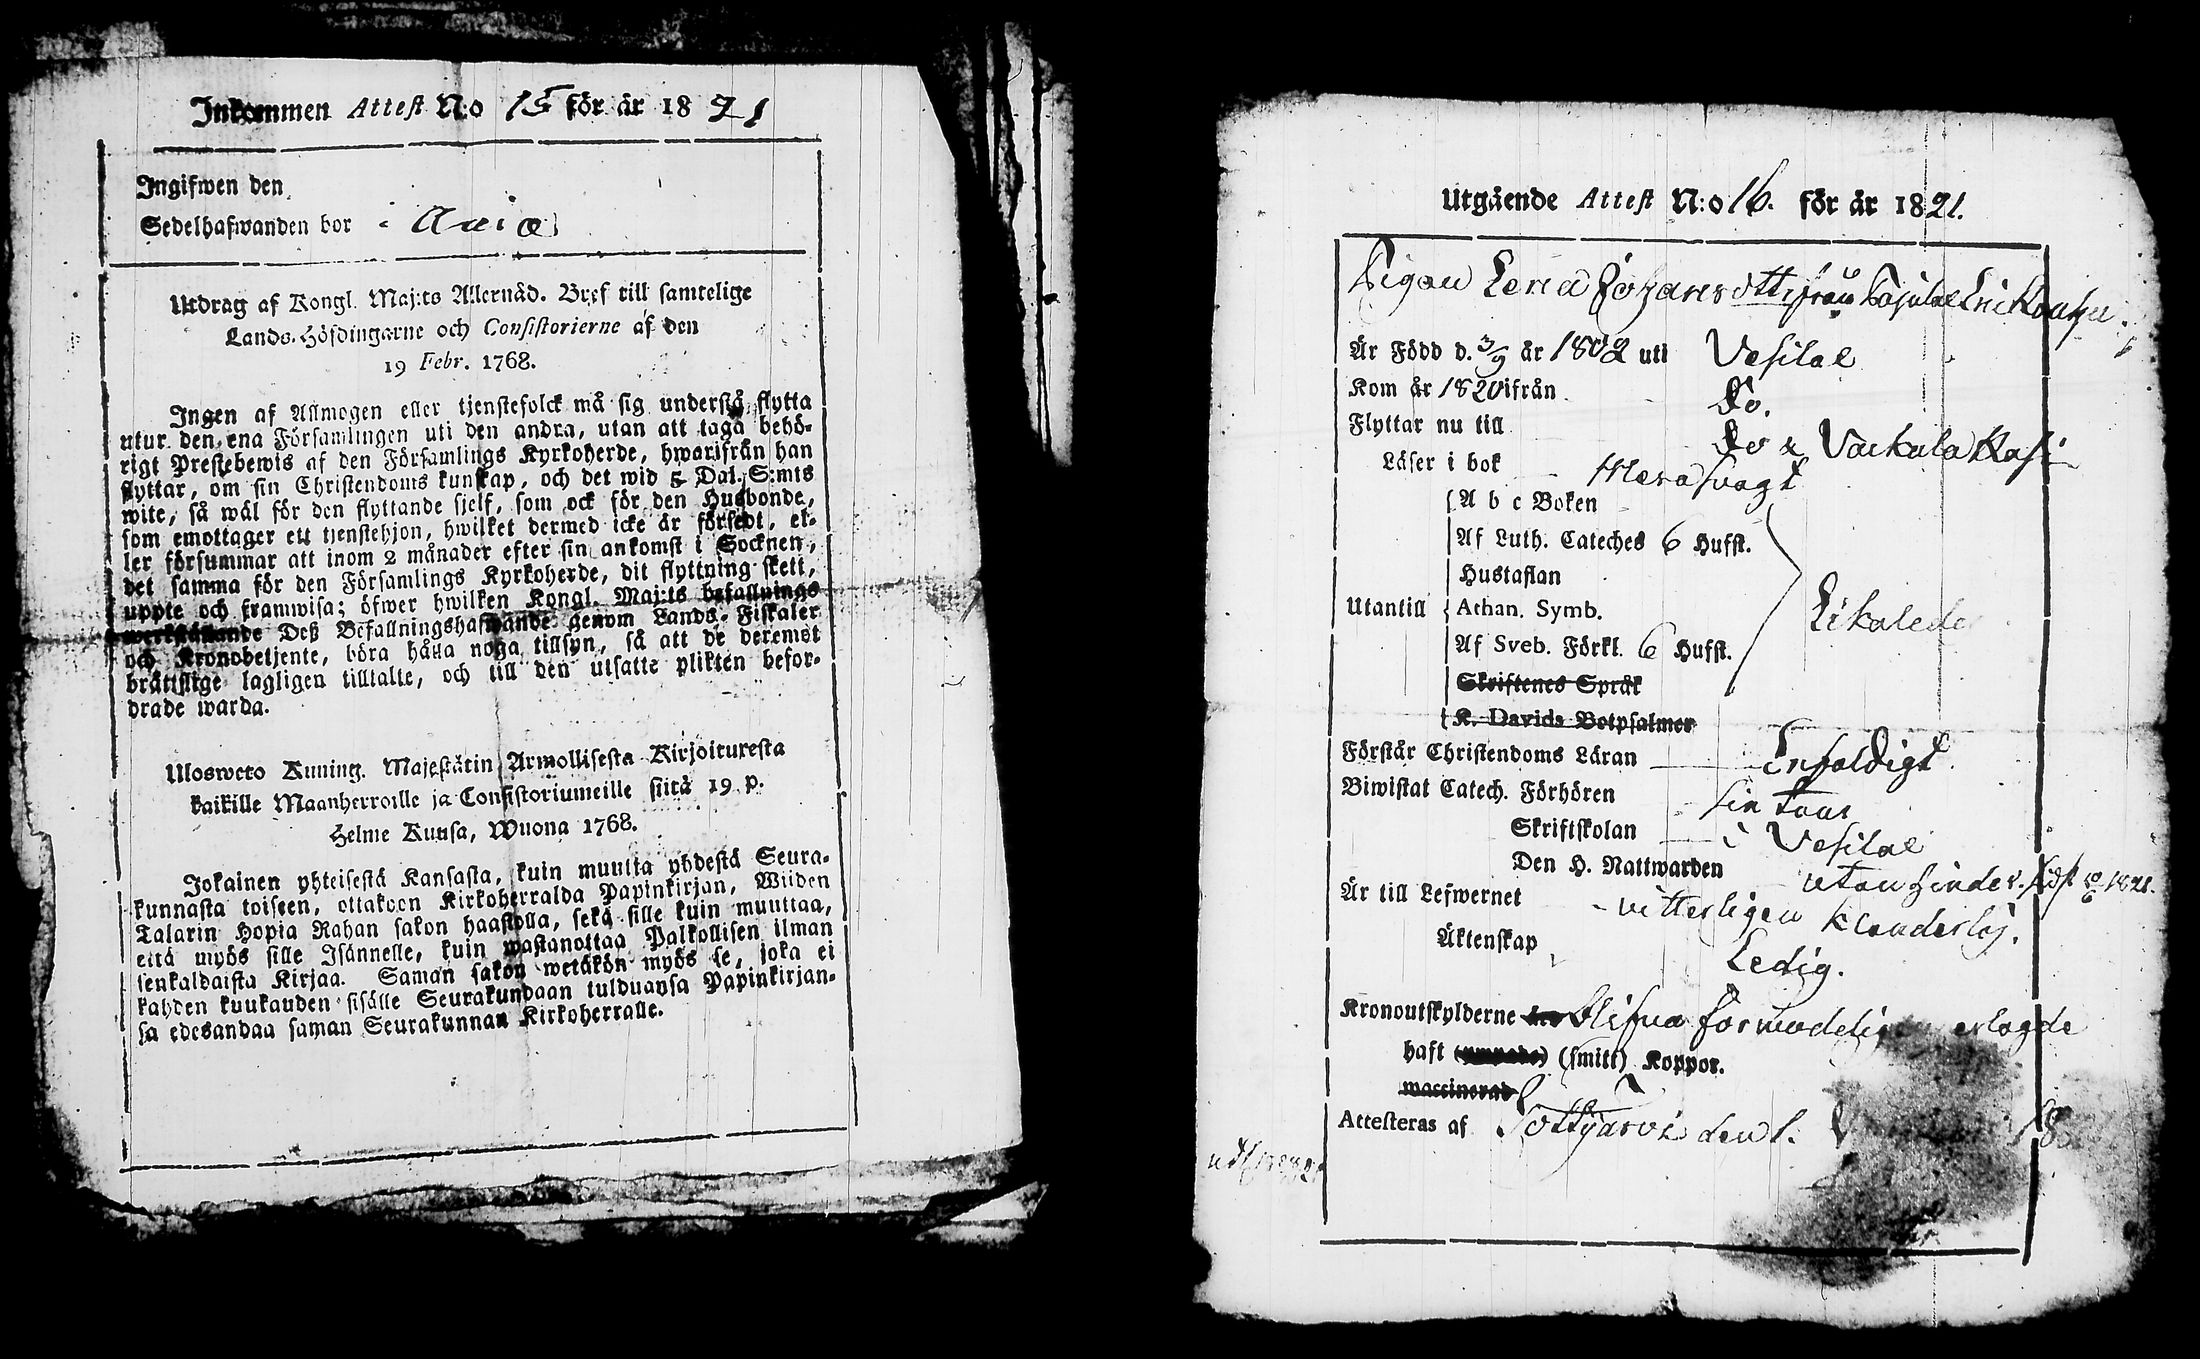 Inkommen Attest N:o 15 för år 1821
Ingifwen den
Sedelhafwanden bor i
Utdrag af Kongl. Maj:ts Allernåd. Bref till samtelige
Lands-Höfdingarne och Consistorierne af den
19 Febr. 1768.
Ingen af Allmogen eller tjenstefolck må sig understå flytta
utur den ena Församlingen uti den andra, utan att taga behö-
rigt Prestebewis af den Församlings Kyrkoherde, hwarifrån han
flyttar, om sin Christendoms kunskap, och det wid 5 Dal. S:mts
wite, så wäl för den flyttande sielf, som ock för den Husbonde,
som emottager ett tjenstehjon, hwilket dermed icke är försedt, el-
ler försummar att inom 2 månader efter sin ankomst i Socknen,
det samma för den Församlings Kyrkoherde, dit flyttning skett,
uppte och framwisa; öfwer hwilken Kongl. Maj:ts befallnings
werkställande Deß Befallningshafwande genom Lands-Fiskaler
och Kronobetjente, böra hålla noga tillsyn, så att de deremot
bråttslige lagligen tilltalte, och till den utsatte plikten befor-
drade warda.
Ulosweto Kuning. Majestätin Armollisesta Kirjoituresta
kaikille Maanherroille ja Consistoriumeille siitä 19 p.
Helme Kuusa, Wuona 1768.
Jokainen yhteisestä Kansasta, kuin muutta yhdestä Seura-
kunnasta toiseen, ottakoon Kirkoherralda Papinkirjan, Wiiden
Talarin Hopia Rahan sakon haastolla, sekä sille kuin muuttaa,
että myös sille Isännelle, kuin wastanottaa Palkollisen ilman
senkaldaista Kirjaa. Saman sakon wetäkön myös se, joka ei
kahden kuukauden sisälle Seurakundaan tulduansa Papinkirjan-
sa edesandaa saman Seurakunnan Kirkoherralle.
Utgående Attest N:o 16. för år 1821.
Pigan Lena Johansdott: från
Är Född d. 3/9 år 1802 uti Vesilax
Kom år 1820 ifrån Do.
Flyttar nu till Do &
Läser i bok svagt
A b c Boken
Af Luth. Cateches 6 Hufst.
Hustaflan
Utantill Athan. Symb. Likaledes
Af Sveb. Förkl. 6 Hufst.
Skriftenes Språk
K. Davids Botpsalmer
Förstår Christendoms Läran Enfaldigt
Biwistat Catech. Förhören
Skriftskolan i Vesilax
Den H. Nattwarden utan hinder. 1821.
Är till Lefwernet vitterligen klanderlös.
Äktenskap Ledig.
Kronoutskylderne blifva förmodeligen erlagde
haft (smitt) Koppor.
waccinerad
Attesteras af Tottijärvi den 1.